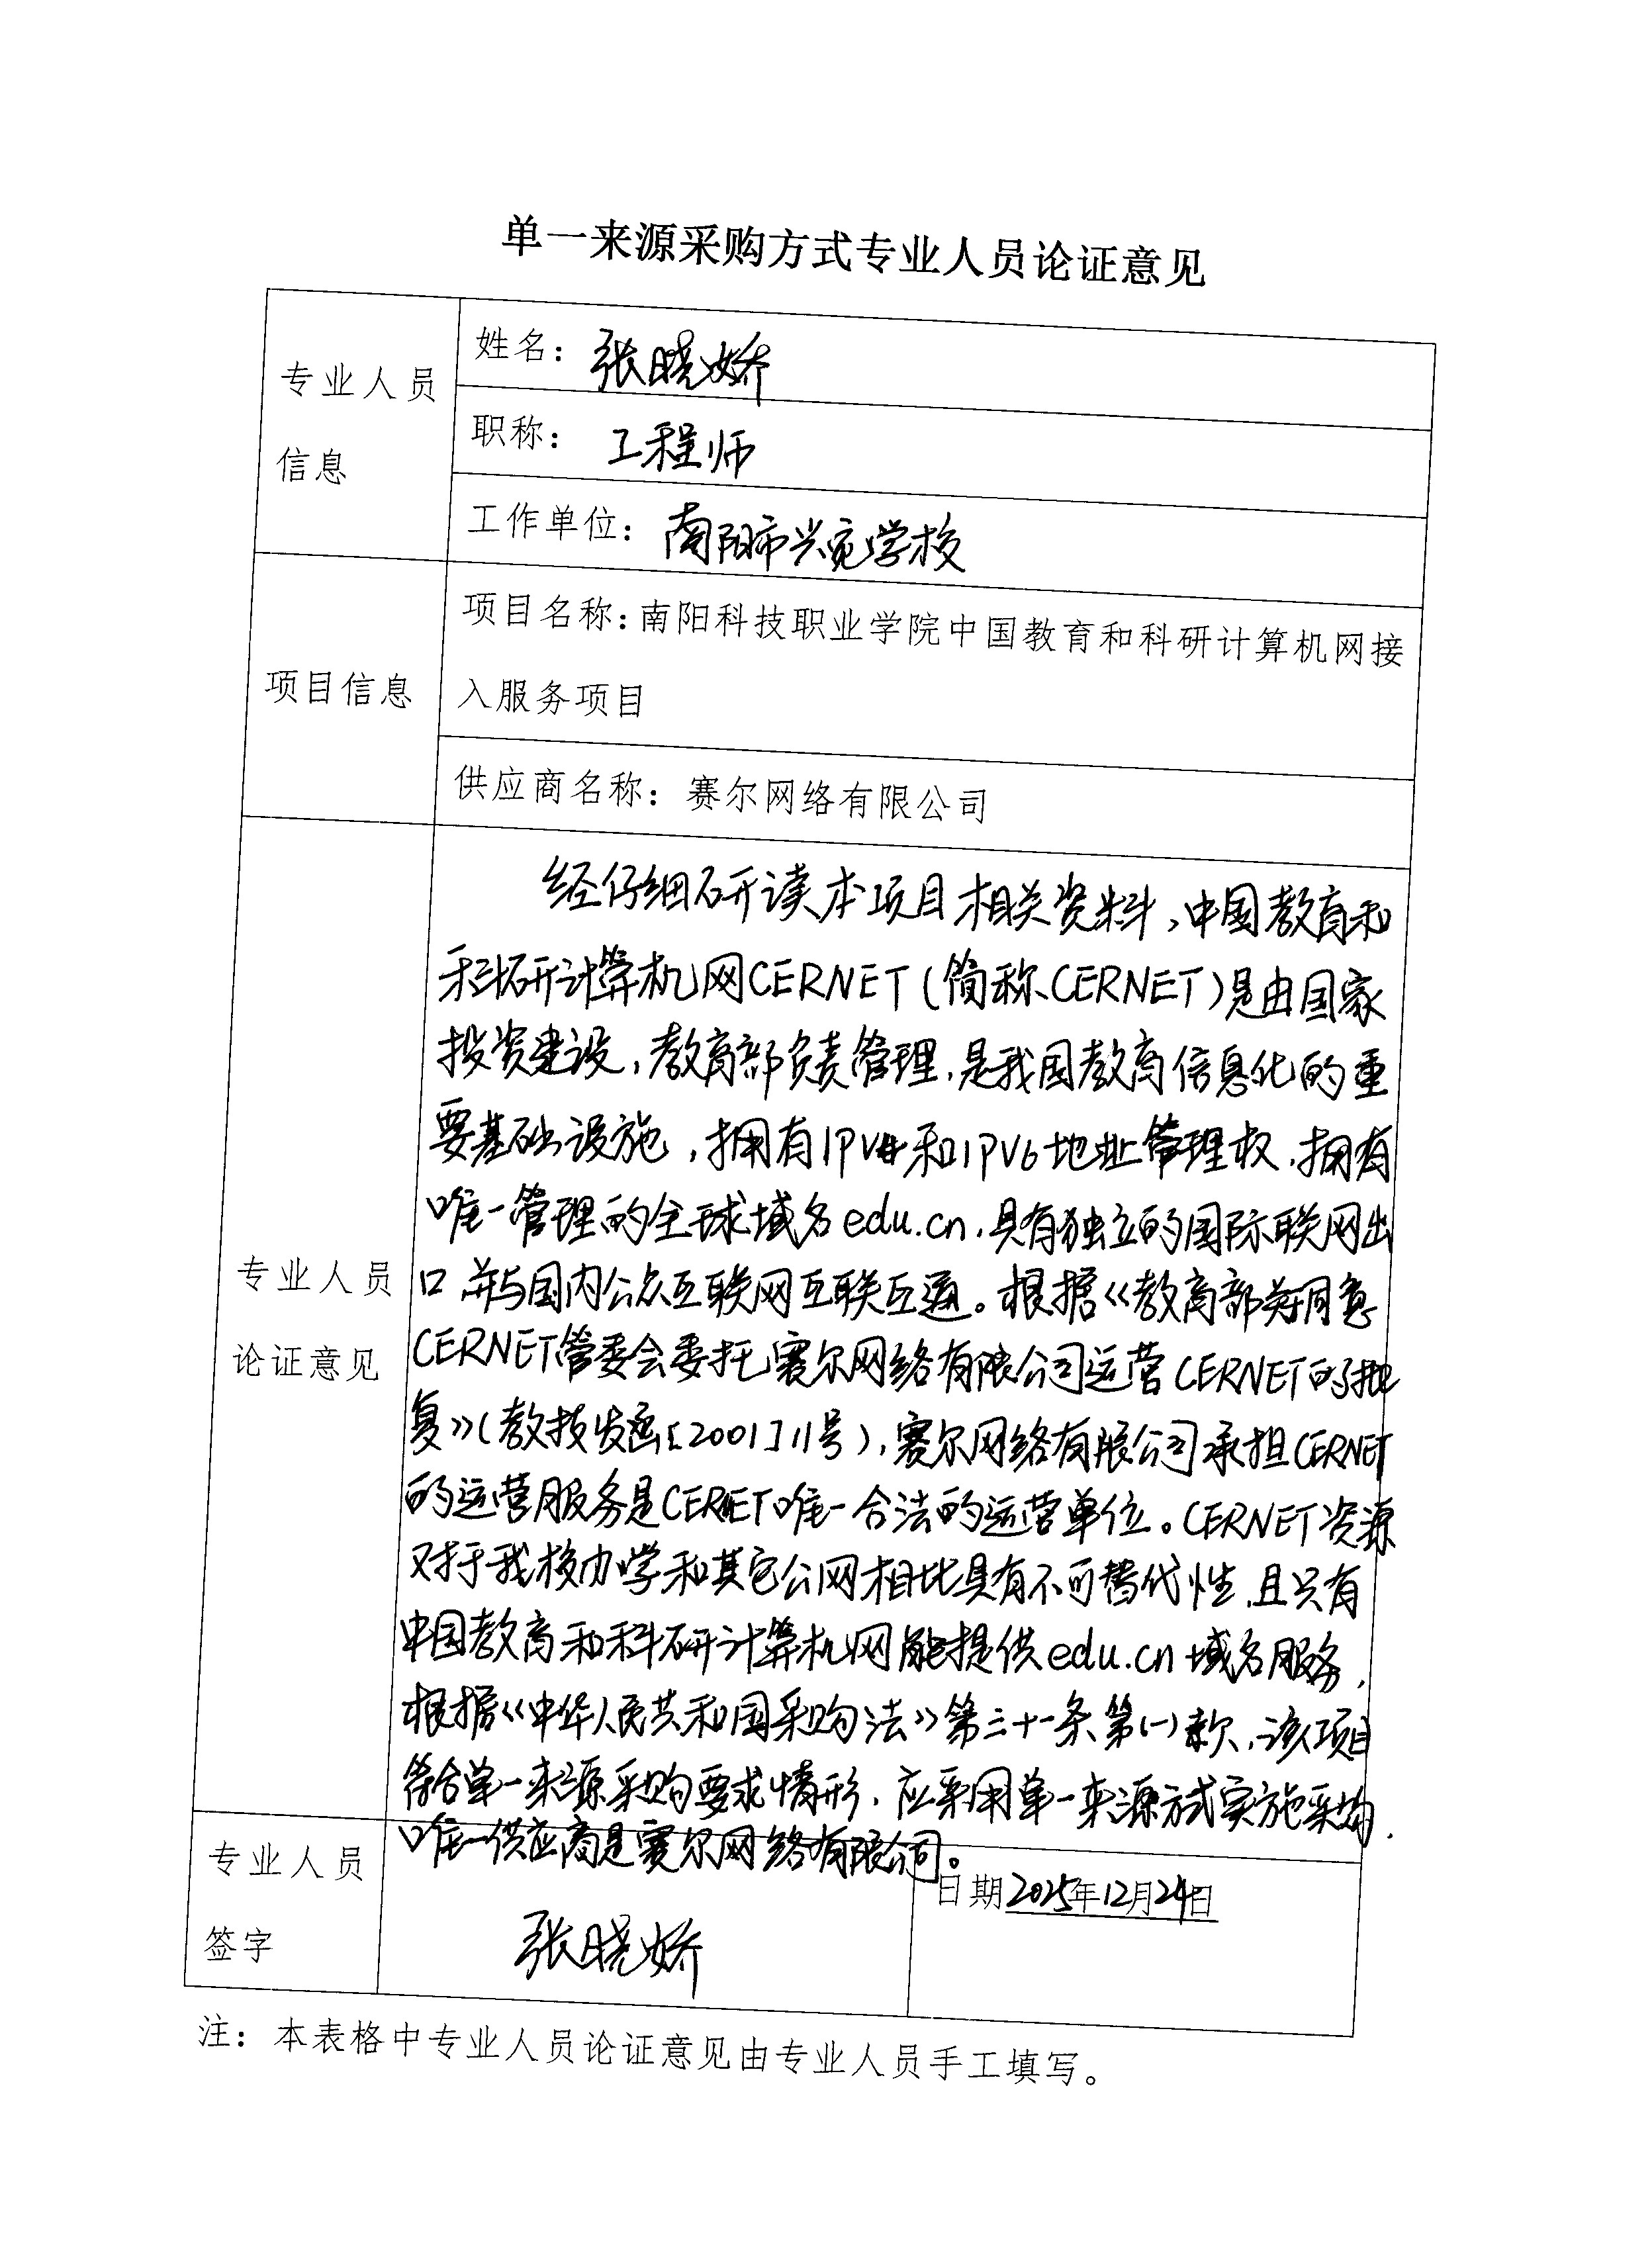 单一来源采购方式专业人员论证意见
专业人员
信息
姓名：张晓娇
职称：工程师
工作单位：南阳市兴宛学校
项目信息
项目名称：南阳科技职业学院中国教育和科研计算机网接
入服务项目
供应商名称：赛尔网络有限公司
专业人员
论证意见
经仔细研读本项目相关资料，中国教育和
科研计算机网CERNET（简称CERNET）是由国家
投资建设，教育部负责管理，是我国教育信息化的重
要基础设施，拥有IPV4和IPV6地址管理权，拥有
唯一管理的全球域名edu.cn，具有独立的国际联网出
口并与国内公众互联网互联互通。根据《教育部关于同意
CERNET管委会委托赛尔网络有限公司运营CERNET的批
复》（教技发函[2001]11号），赛尔网络有限公司承担CERNET
的运营服务是CERNET唯一合法的运营单位。CERNET资源
对于我校办学和其它公网相比具有不可替代性，且只有
中国教育和科研计算机网能提供edu.cn域名服务，
根据《中华人民共和国采购法》第三十一条第(一)款，该项目
符合单一来源采购要求情形，应采用单一来源方式实施采购，
唯一供应商是赛尔网络有限公司。
专业人员
签字
张晓娇
日期2025年12月24日
注：本表格中专业人员论证意见由专业人员手工填写。